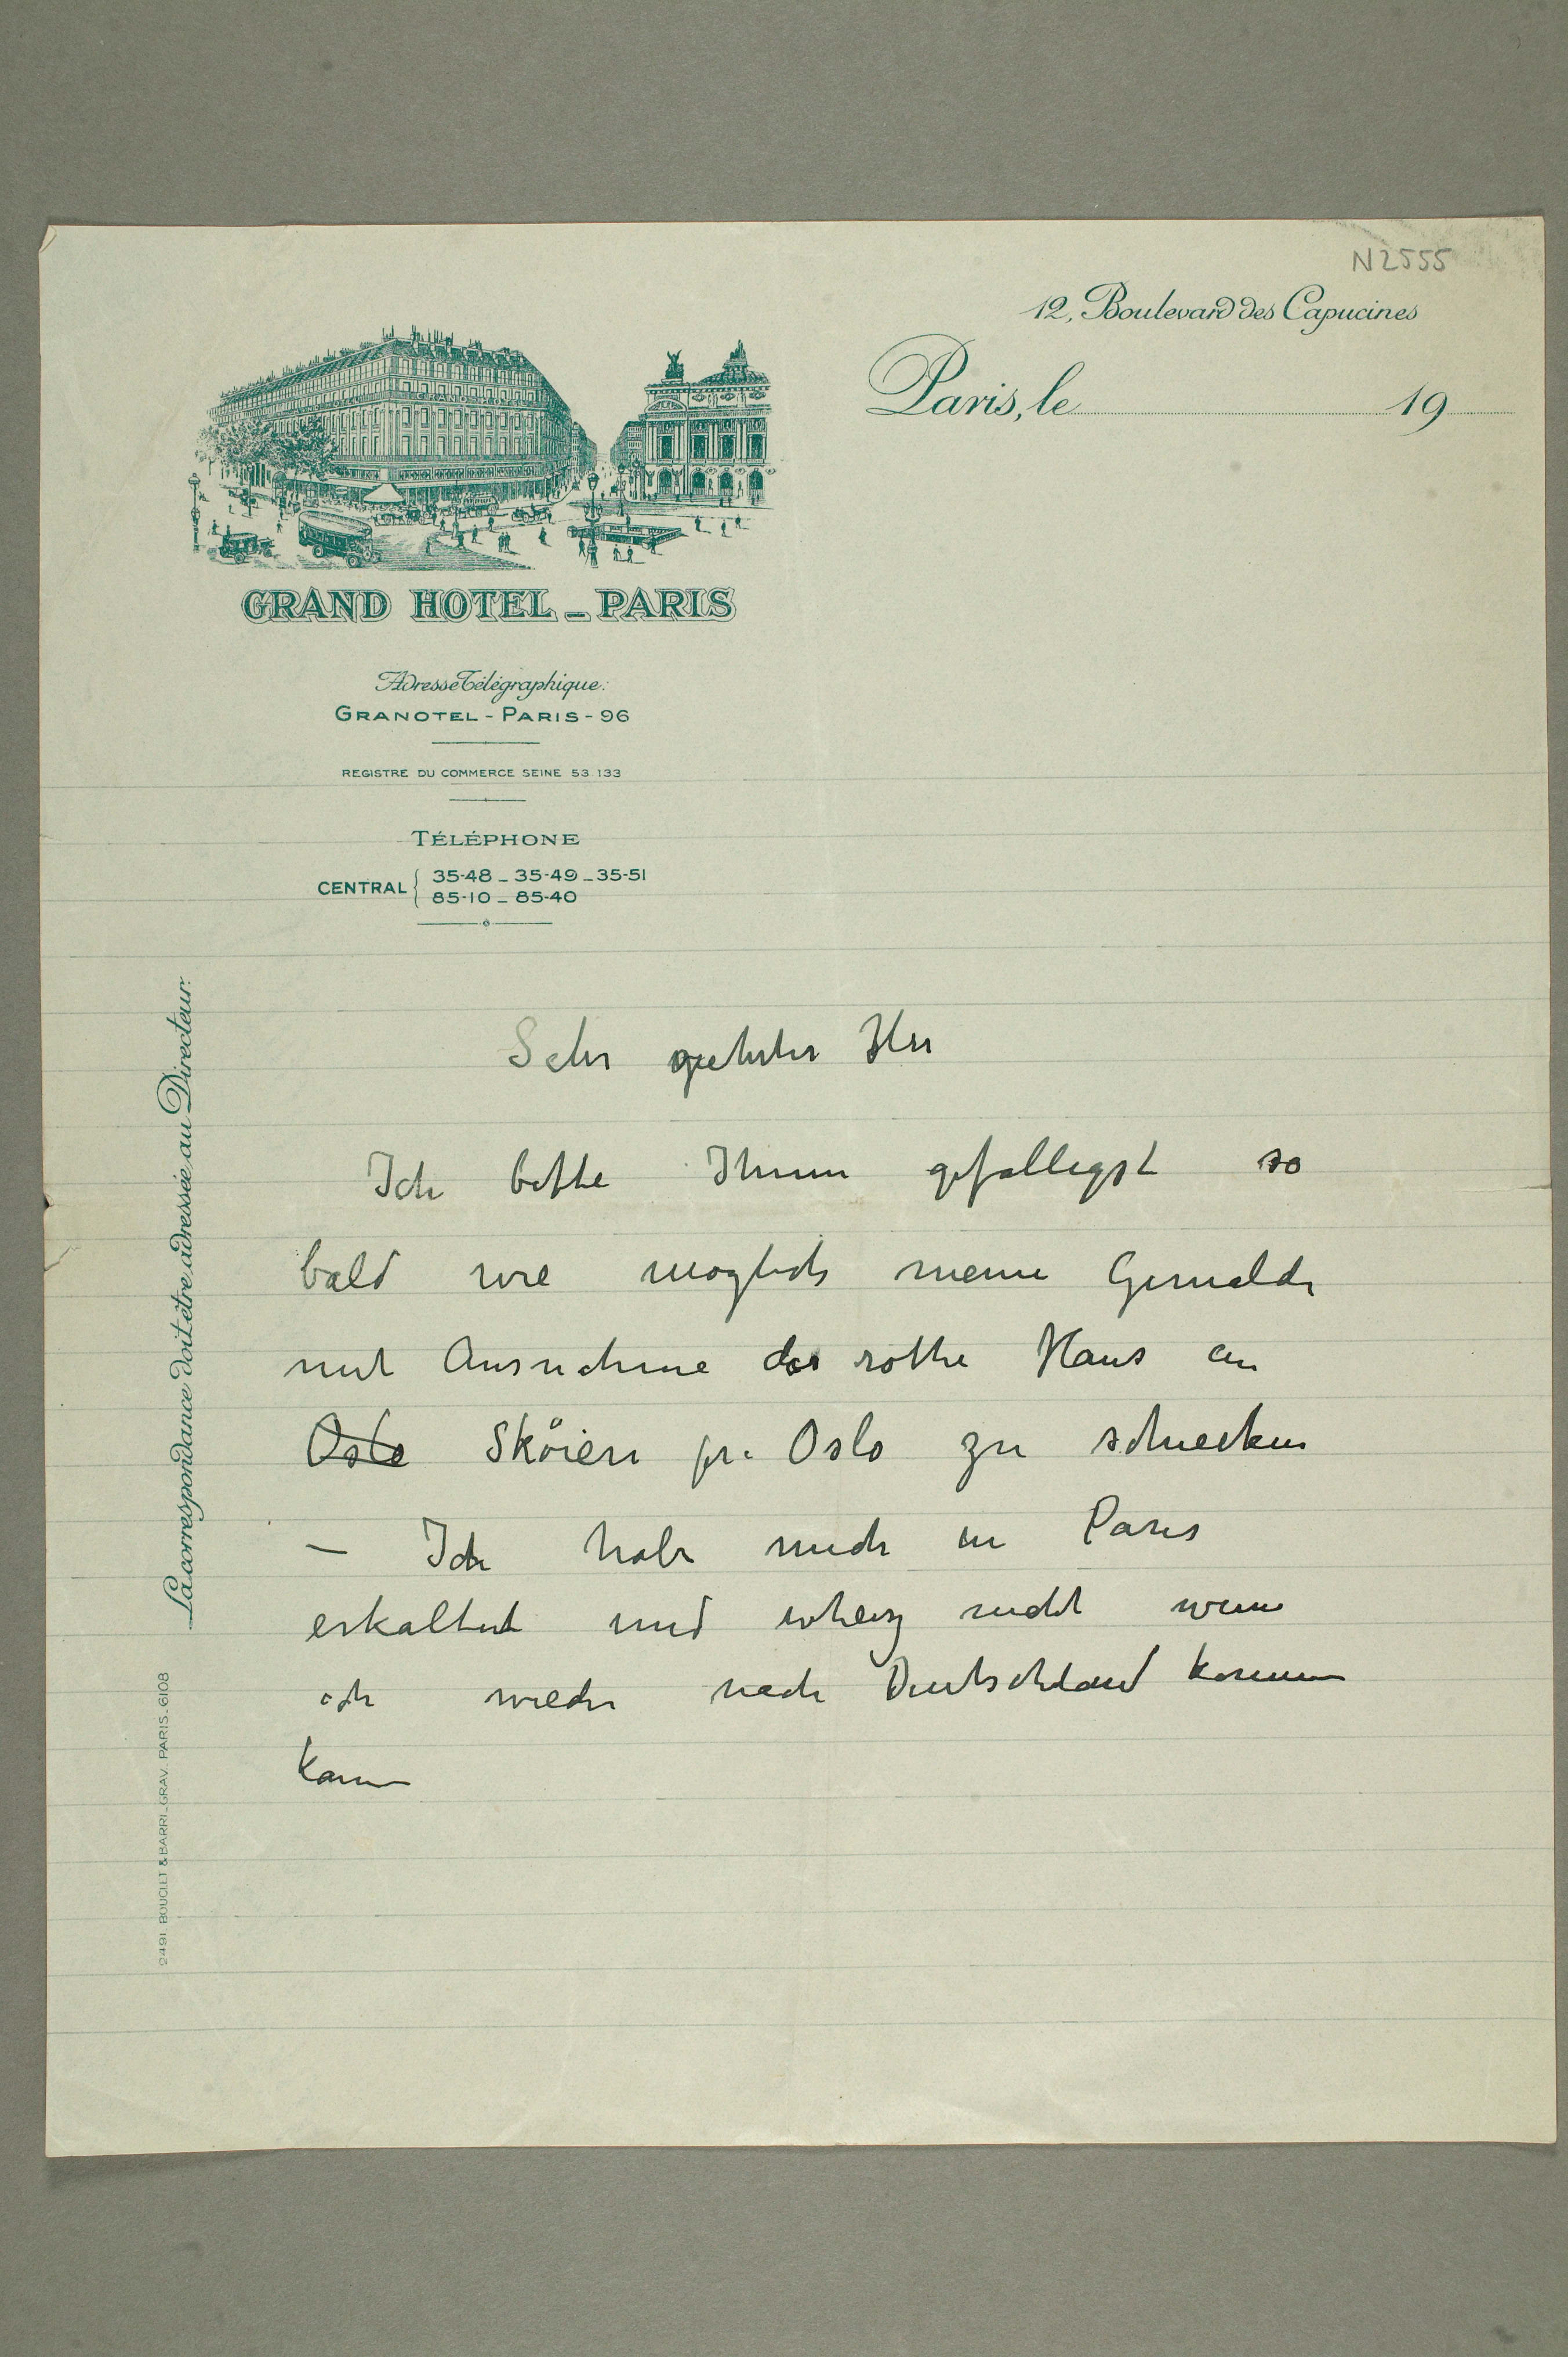 N 2555
12, Boulevard des Capucines
Paris, le 19
GRAND HOTEL - PARIS
Adresse Télégraphique:
GRANOTEL - PARIS - 96
REGISTRE DU COMMERCE SEINE 53.133
TÉLÉPHONE
CENTRAL { 35-48 - 35-49 - 35-51
85-10 - 85-40
La correspondance doit être adressée au Directeur.
2491. BOUCLET & BARRI-GRAV. PARIS. 6108
Sehr geehrter Herr
Ich bitte Ihnen gefalligst so
bald wie moglich meine Gemalde
mit Ausnahme das rothe Haus an
Oslo Sköien pr. Oslo zu schicken
– Ich habe mich in Paris
erkaltet und weisz nicht wenn
ich wieder nach Deutschland kommen
kann